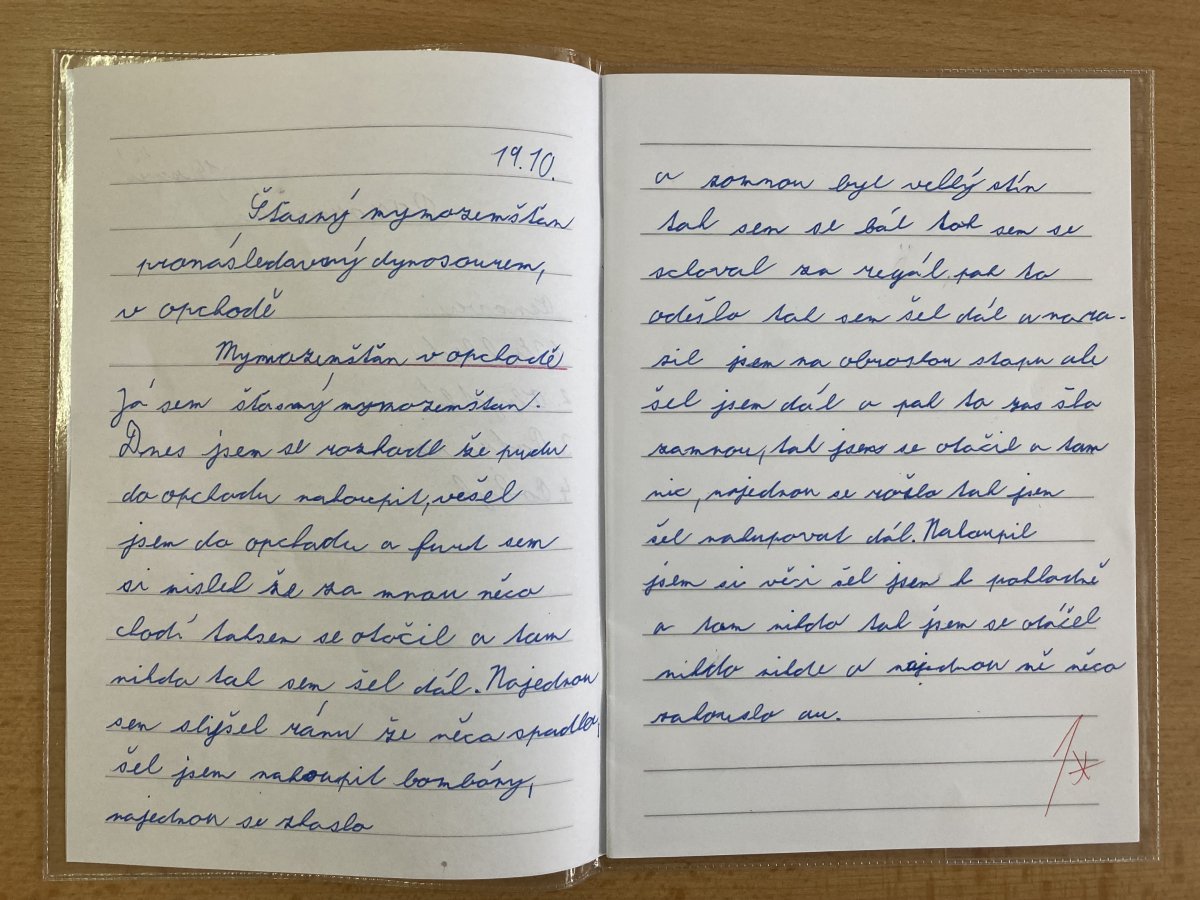 19.10.
Šťasný mymozemšťan
pronásledavaný dynosourem,
v opchodě
Mymozemšťan v opchodě
Já sem šťasný mymozemštan.
Dnes jsem se rozhodl že pudu
do opchodu nakoupit, vešel
jsem do opchodu a furt sem
si mislel že za mnou něco
chodí taksem se otočil a tam
nikdo tak sem šel dál. Najednou
sem slyšel ránu že něco spadlo,
šel jsem nakoupit bombóny,
najednou se zhaslo
a zomnou byl velký stín
tak sem se bál tak sem se
schoval za regál pak to
odešlo tak sem šel dál a nara-
sil jsem na obroskou stopu ale
šel jsem dál a pak to zas šlo
zamnou, tak jsem se otáčil a tam
nic, najednou se rošlo tak jsem
šel nakupovat dál. Nakoupil
jsem si věci šel jsem k pokladně
a tam nikdo tak jsem se otáčel
nikdo nikde a najednou mě něco
zakouslo au.
1*